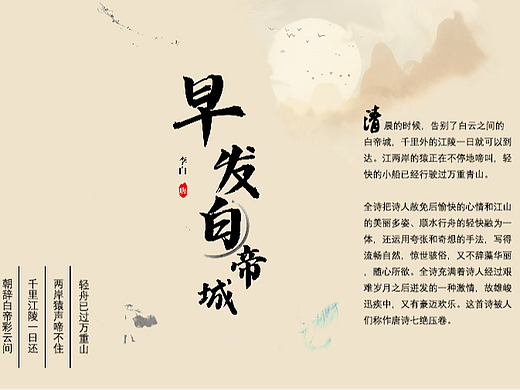 早发白帝城
李白
唐
清晨的时候，告别了白云之间的
白帝城，千里外的江陵一日就可以到
达。江两岸的猿正在不停地啼叫，轻
快的小船已经行驶过万重青山。
全诗把诗人赦免后愉快的心情和江山
的美丽多姿、顺水行舟的轻快融为一
体，还运用夸张和奇想的手法，写得
流畅自然，惊世骇俗，又不辞藻华丽
，随心所欲。全诗充满着诗人经过艰
难岁月之后迸发的一种激情，故雄峻
迅疾中，又有豪迈欢乐。这首诗被人
们称作唐诗七绝压卷。
朝辞白帝彩云间
千里江陵一日还
两岸猿声啼不住
轻舟已过万重山